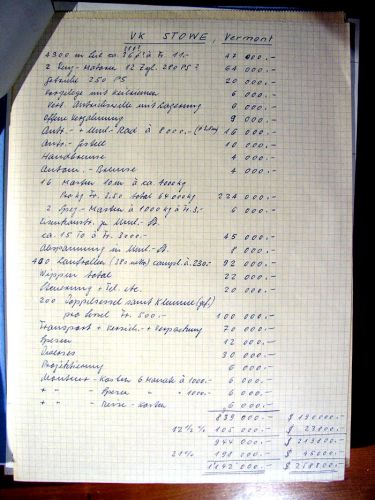 VK STOWE, Vermont
4300 m Seil ca. 36 ø à Fr. 11.- 47 000.-
2 Leng-Motoren 12 Zyl. 280 PS ? 64 000.-
Getriebe 250 PS 20 000.-
Vorgelege mit Keilriemen 6 000.-
Vert. Antriebswelle mit Lagerung 6 000.-
Offene Verzahnung 9 000.-
Antr.- + Uml.-Rad à 8000.- 16 000.-
Antr.- Gestell 10 000.-
Handbremse 4 000.-
Autom.- Bremse 4 000.-
16 Masten 10 m à ca. 4000 kg
pro kg Fr. 3.50 total 64 000 kg 224 000.-
2 Masten à 1000 kg à Fr. 3.- 6 000.-
Eisenkonstr. zu Uml.-St.
ca. 15 To à Fr. 3000.- 45 000.-
Abspannung in Uml.-St. 8 000.-
400 Laufrollen (380 mm) compl. à 230.- 92 000.-
Wippen total 22 000.-
Steuerung + Tel. etc. 20 000.-
200 Doppelsessel samt Klemme
pro Sessel Fr. 500.- 100 000.-
Transport + Versich.- + Verpackung 70 000.-
Spesen 12 000.-
Diverses 30 000.-
Projektierung 6 000.-
Monteur-Kosten 6 Monate à 1000.- 6 000.-
+ " Spesen " " 1000.- 6 000.-
+ " Reise-Kosten 6 000.-
839 000.- $ 196000.-
12 1/2 % 105 000.- $ 23000.-
944 000.- $ 219000.-
21 % 198 000.- $ 46000.-
1'142 000.-